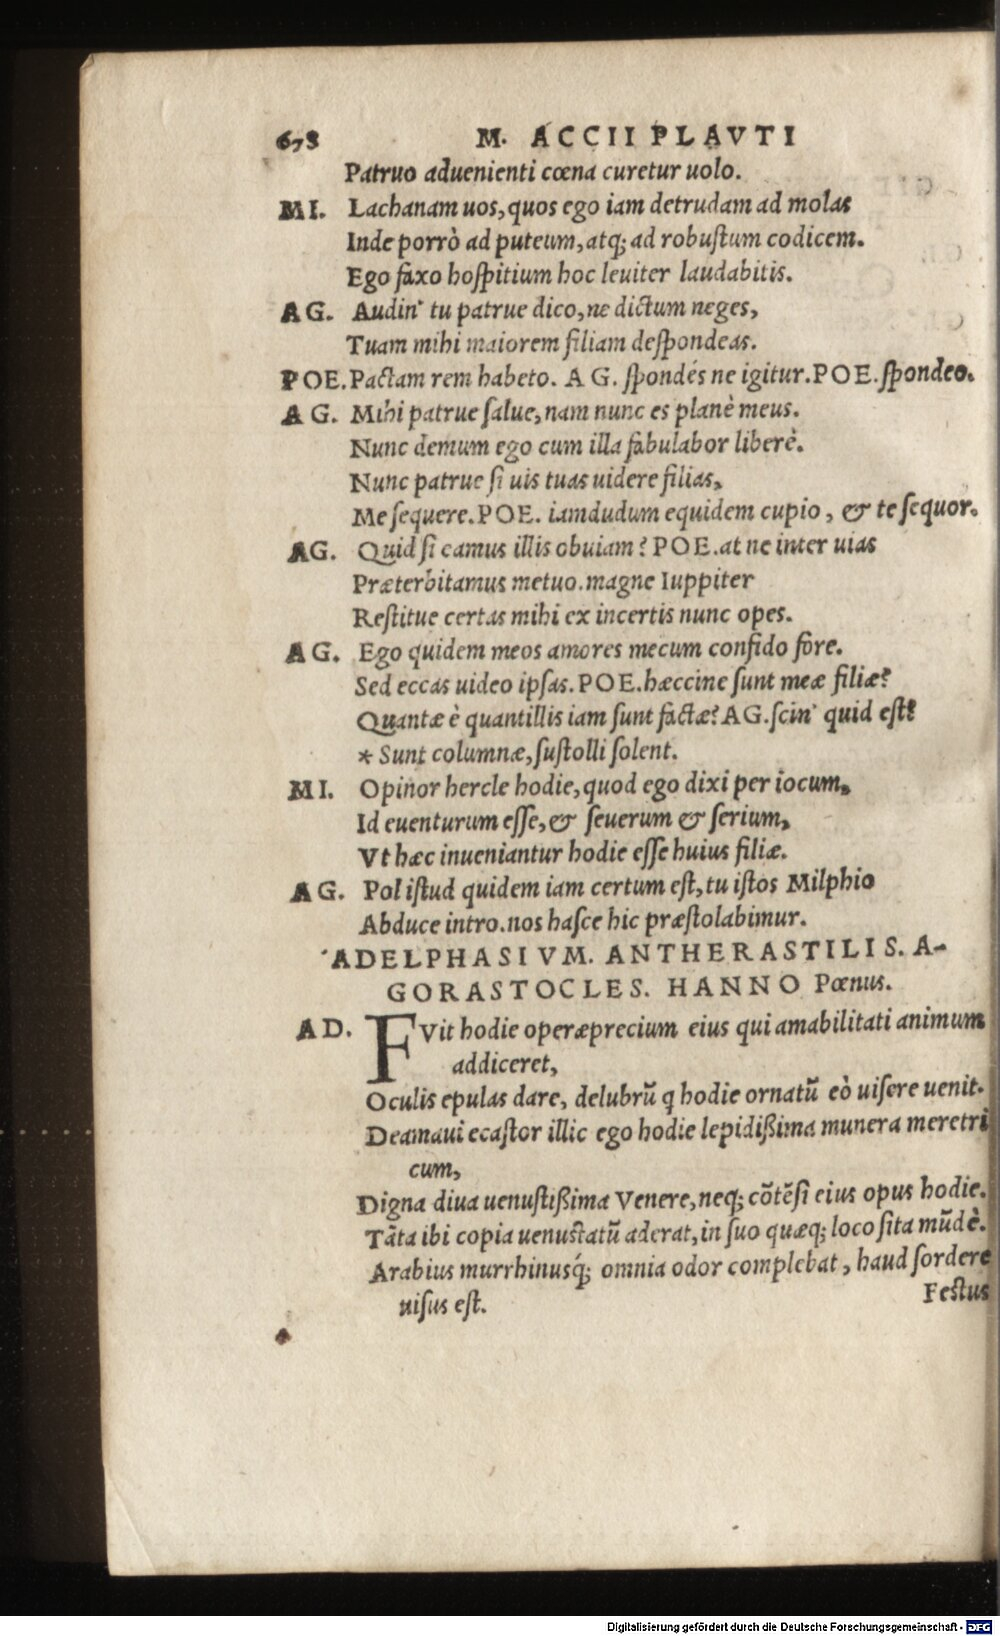 678 M. ACCII PLAVTI
Patruo aduenienti cœna curetur uolo.
MI. Lachanam uos, quos ego iam detrudam ad molas
Inde porrò ad puteum, atq; ad robuſtum codicem.
Ego faxo hoſpitium hoc leuiter laudabitis.
AG. Audin' tu patrue dico, ne dictum neges,
Tuam mihi maiorem filiam deſpondeas.
POE. Pactam rem habeto. AG. ſpondés ne igitur. POE. ſpondeo.
AG. Mihi patrue ſalue, nam nunc es planè meus.
Nunc demum ego cum illa fabulabor liberè.
Nunc patrue ſi uis tuas uidere filias,
Me ſequere. POE. iamdudum equidem cupio, & te ſequor.
AG. Quid ſi eamus illis obuiam? POE. at ne inter uias
Præterbitamus metuo. magne Iuppiter
Reſtitue certas mihi ex incertis nunc opes.
AG. Ego quidem meos amores mecum confido fore.
Sed eccas uideo ipſas. POE. hæccine ſunt meæ filiæ?
Quantæ è quantillis iam ſunt factæ? AG. ſcin' quid eſt?
* Sunt columnæ, ſuſtolli ſolent.
MI. Opinor hercle hodie, quod ego dixi per iocum,
Id euenturum eſſe, & ſeuerum & ſerium,
Vt hæc inueniantur hodie eſſe huius filiæ.
AG. Pol iſtud quidem iam certum eſt, tu iſtos Milphio
Abduce intro. nos haſce hic præſtolabimur.
ADELPHASIVM. ANTHERASTILIS. A-
GORASTOCLES. HANNO Pœnus.
AD. FVit hodie operæprecium eius qui amabilitati animum
addiceret,
Oculis epulas dare, delubrũ q hodie ornatũ eò uiſere uenit.
Deamaui ecaſtor illic ego hodie lepidißima munera meretri
cum,
Digna diua uenuſtißima Venere, neq; cõtẽſi eius opus hodie.
Tãta ibi copia uenuſtatũ aderat, in ſuo quæq; loco ſita mũdè.
Arabius murrhinusq́; omnia odor complebat, haud ſordere
uiſus eſt.
Feſtus
Digitalisierung gefördert durch die Deutsche Forschungsgemeinschaft - DFG